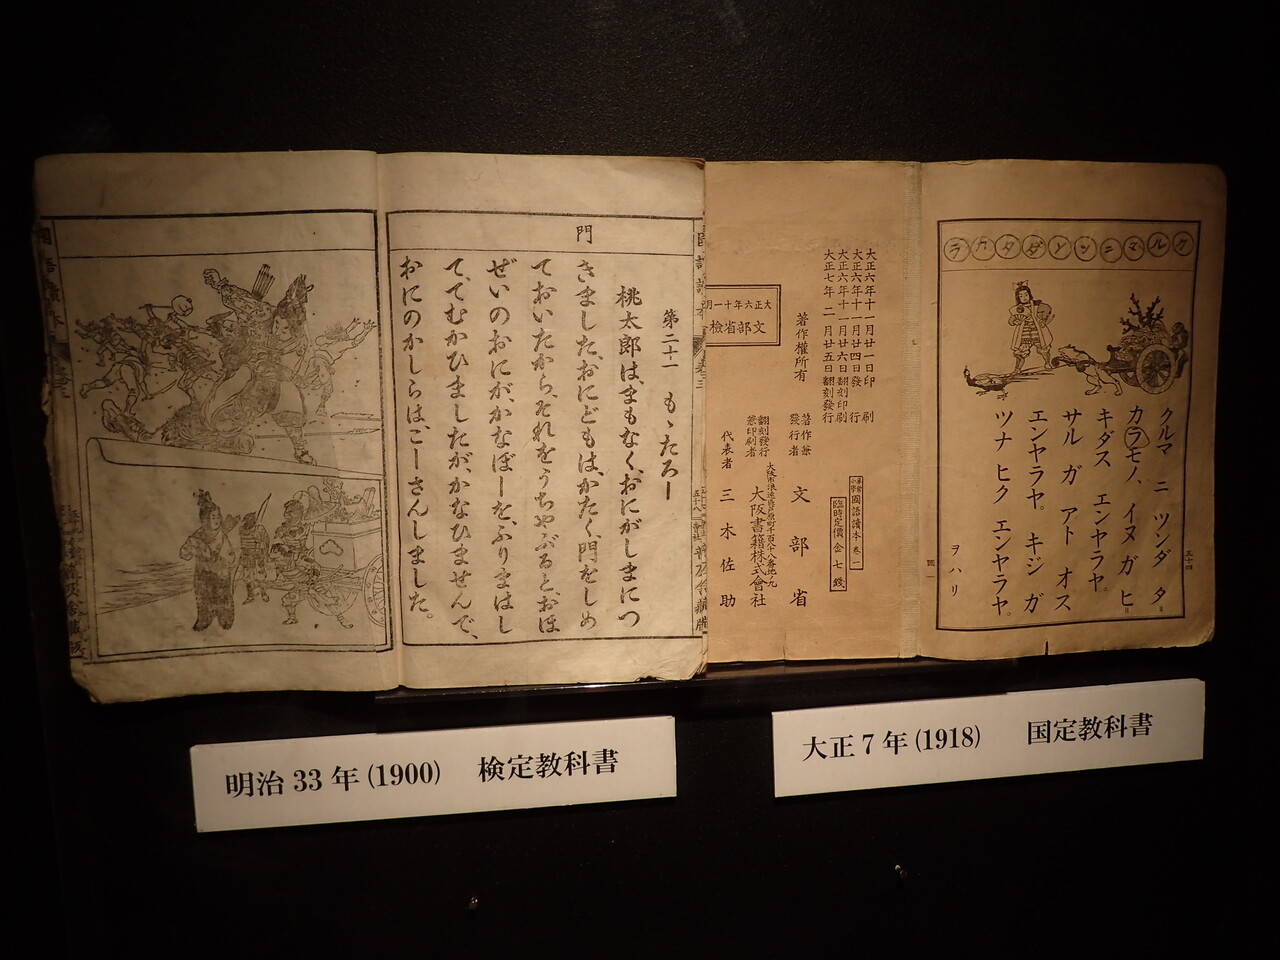 門
第二十一 もゝたろー
桃太郎は、まもなく、おにがしまにつ
きました、おにどもは、かたく、門をしめ
ておいたから、それをうちやぶると、おほ
ぜいのおにが、かなぼーを、ふりまはし
て、てむかひましたが、かなひませんで、
おにのかしらは、ごーさんしました。
大正六年十一月廿一日印刷
大正六年十一月廿四日發行
大正六年十一月廿六日翻刻印刷
大正七年二月廿五日翻刻發行
著作權所有
著作兼
發行者 文部省
翻刻發行
兼印刷者
大阪書籍株式會社
代表者 三木佐助
國語讀本 卷一
臨時定價金七錢
文部省檢
クルマニツンダタカラ
クルマ ニ ツンダ タ
カラモノ、イヌ ガ ヒ
キダス エンヤラヤ。
サル ガ アト オス
エンヤラヤ。 キジ ガ
ツナ ヒク エンヤラヤ。
ヲハリ
五十四
明治 33 年 (1900) 検定教科書
大正 7 年 (1918) 国定教科書